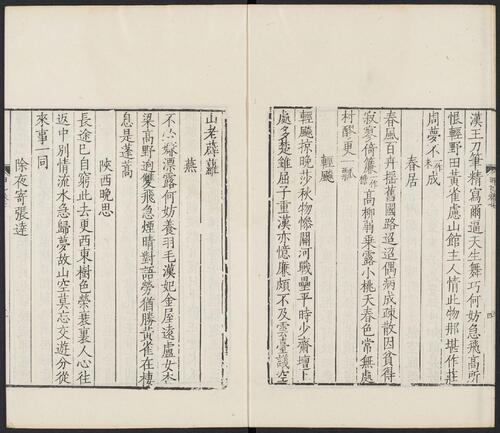 漢王刀筆精寫爾逼天生舞巧何妨急飛高所
恨輕野田黃雀慮山館主人情此物那堪作莊
周夢不一作未成
春居
春風百卉搖舊國路迢迢偶病成疎散因貧得
寂寥倚簾一作簷高柳弱乗露小桃夭春色常無處
村醪更一瓢
輕飈
輕飈掠晚莎秋物慘關河戰壘平時少齋壇上
處多楚雖屈子重漢亦憶廉頗不及雲臺議空
山老薜蘿
燕
不必嫌漂露何妨養羽毛漢妃金屋遠盧女杏
梁高野迥雙飛急煙晴對語勞猶勝黃雀在棲
息是蓬蒿
陝西晚思
長途已自窮此去更西東樹色蘂裏人心往
返中別情流水急歸夢故山空莫忘交遊分從
來事一同
除夜寄張達